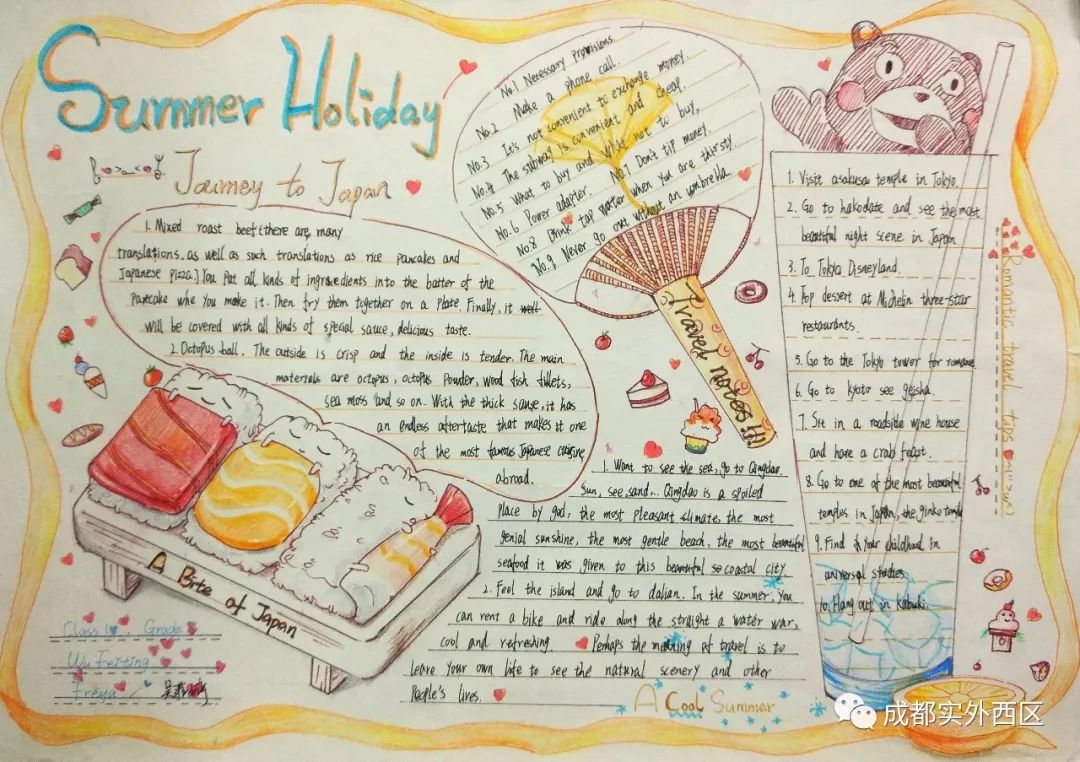 Summer Holiday
Journey to Japan
1. Mixed roast beef (there are many
translations. as well as such translations as rice pancakes and
Japanese pizza.) You Put all kinds of ingredients into the batter of the
Pancake whe You make it. Then fry them together on a Plate. Finally, it well
will be covered with all kinds of special sauce, delicious taste.
2. Octopus ball. The outside is crisp and the inside is tender. The main
materials are octopus, octopus Powder, wood fish fillets,
sea moss and so on. With the thick sause, it has
an endless aftertaste that makes it one
of the most famous Japanese cuising
abroad.
No.1 Necessary Provisions.
No.2 Make a phone call.
No.3 It's not convenient to exchange money.
No.4 The subway is convenient and cheap.
No.5 What to buy and what not to buy.
No.6 Power adapter. No.7 Don't tip money.
No.8 Drink tap water when you are thirsty.
No.9 Never go out without an umbrella.
Travel notes!!!
1. Visit asakusa temple in Tokyo.
2. Go to hakodate and see the most
beautiful night scene in Japan
3. To Tokyo Disneyland.
4. Top dessert at Michelin three-star
restaurants.
5. Go to the Tokyo tower for romance
6. Go to kyoto see geisha.
7. Sit in a roadside wine house
and have a crab feast.
8. Go to one of the most beautiful
temples in Japan, the ginko temple
9. Find your childhood in
universal studies.
10. Hang out in Kabuki.
Romantic travel tips
1. Want to see the sea, go to Qingdao.
Sun, see, sand... Qingdao is a spoiled
Place by god, the most pleasant climate, the most
genial sunshine, the most gentle beach, the most beautiful
seafood it was given to this beautiful se coastal city
2. Feel the island and go to dalian. In the summer, You
can rent a bike and ride along the straight a water war,
cool and refreshing. Perhaps the meaning of travel is to
leave Your own life to see the natural scenery and other
People's lives.
A Bite of Japan
A Cool Summer
Class 10, Grade
Wu Feiting
Freya
成都实外西区